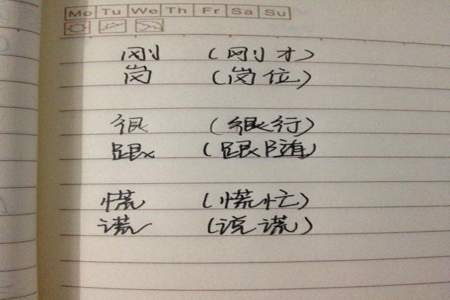 Mo Tu We Th Fr Sa Su
刚 (刚才)
岗 (岗位)
很 (很行)
跟 (跟随)
慌 (慌忙)
谎 (说谎)